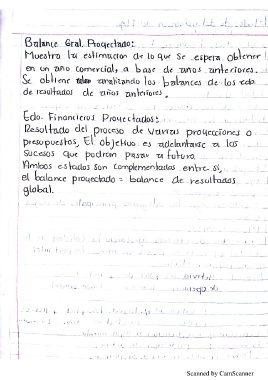 Balance Gral. Proyectado:
Muestra la estimación de lo que se espera obtener
en un año comercial, a base de años anteriores.
Se obtiene analizando los balances de los edo
de resultados de años anteriores.
Edo. Financieros Proyectados:
Resultado del proceso de varias proyecciones o
presupuestos, El objetivo es adelantarse a los
sucesos que podrán pasar a futuro.
Ambos estados son complementados entre sí,
el balance proyectado = balance de resultados
global.
Scanned by CamScanner